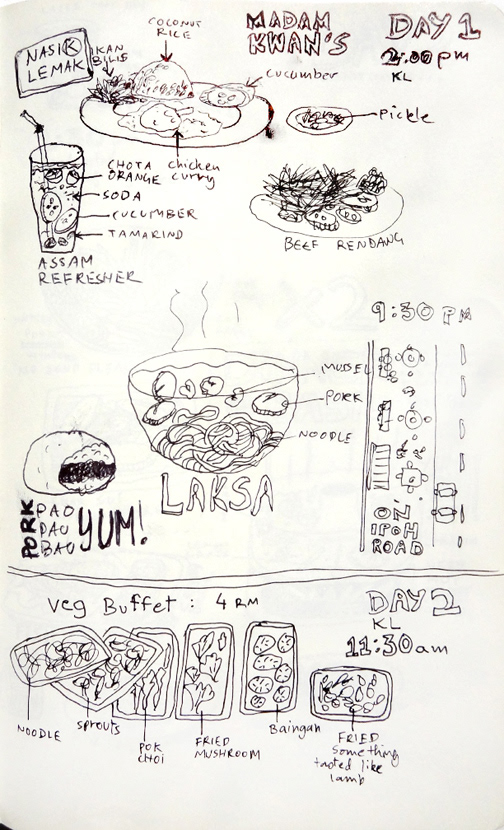 NASI K
LEMAK
IKAN
BILIS
COCONUT
RICE
MADAM
KWAN'S
DAY 1
2.00 pm
KL
Cucumber
Pickle
chicken
curry
CHOTA
ORANGE
SODA
CUCUMBER
TAMARIND
ASSAM
REFRESHER
BEEF RENDANG
9:30 PM
MUSSEL
PORK
NOODLE
LAKSA
PORK
PAO
DAO
BAO
YUM!
ON
IPOH
ROAD
Veg Buffet : 4 RM
DAY 2
KL
11:30am
NOODLE
sprouts
POK
CHOI
FRIED
MUSHROOM
Baingan
FRIED
Something
tasted like
lamb